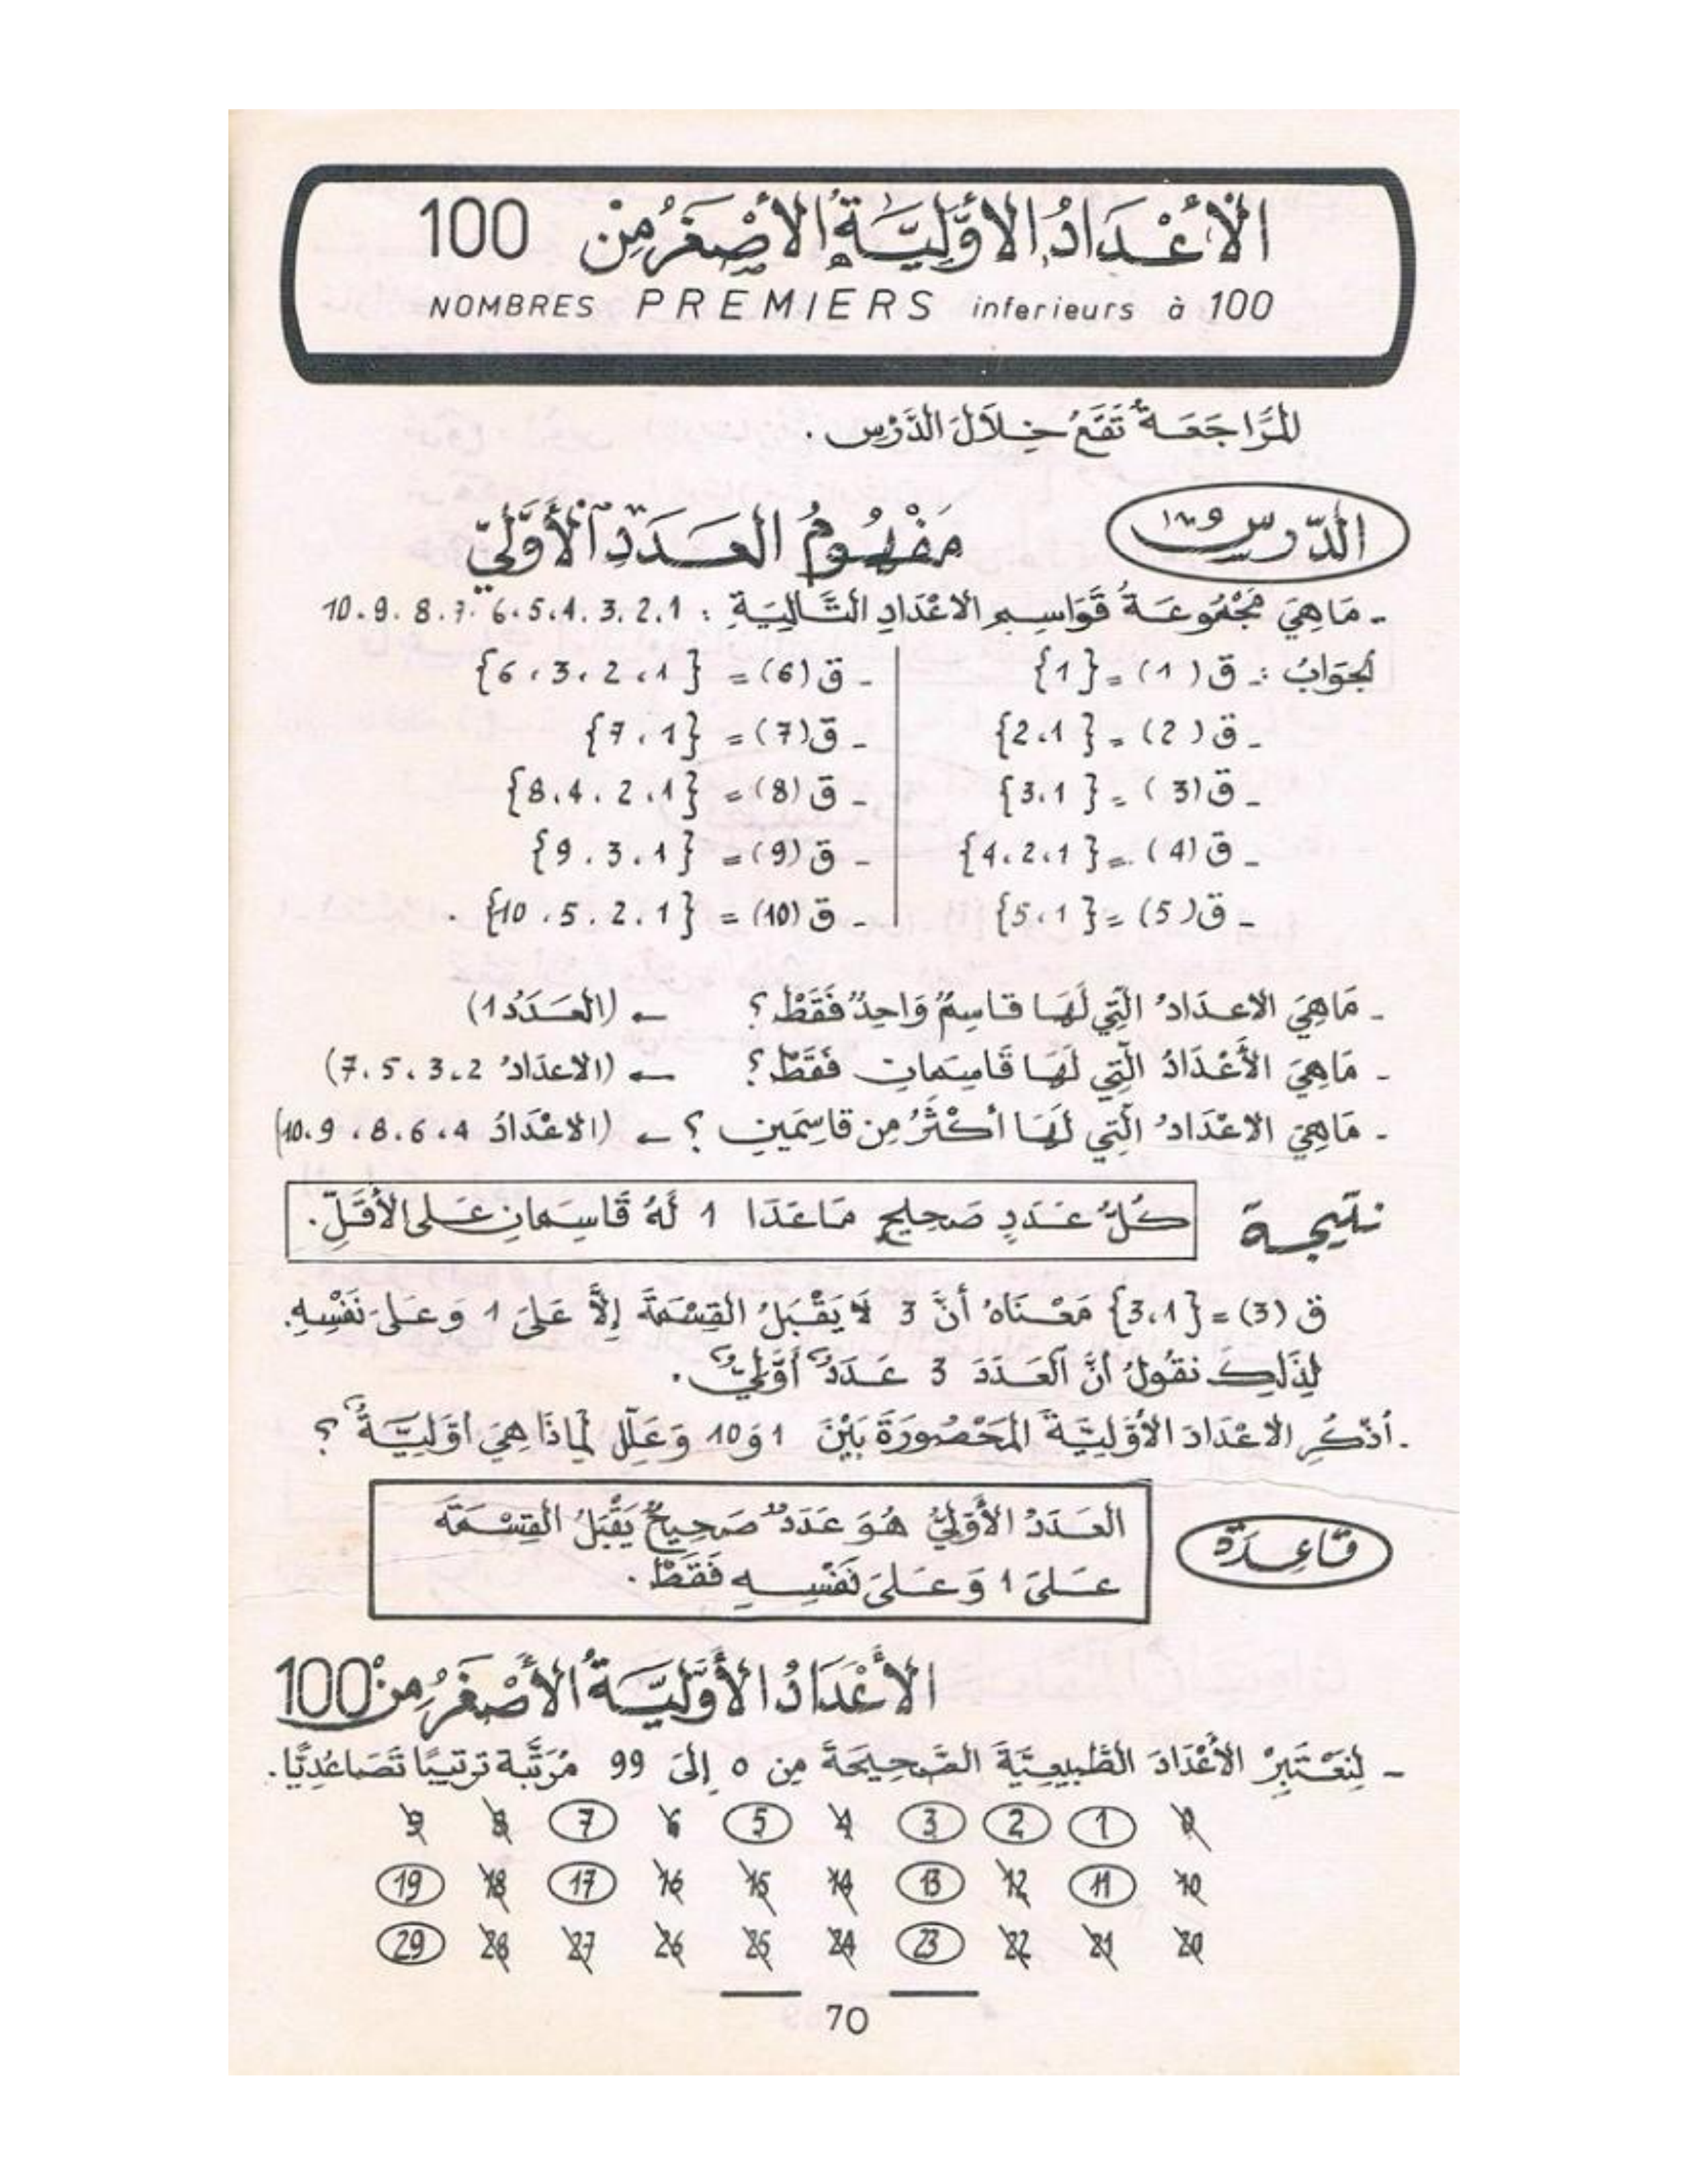 الْأَعْدَادُ الأَوَّلِيَّةُ الأَصْغَرُ مِنْ 100
NOMBRES PREMIERS inferieurs à 100
المُرَاجَعَةُ تَقَعُ خِلَالَ الدَّرْسِ .
الدّرس
مَفْهُومُ العَدَدِ الأَوَّلِيّ
- مَا هِيَ مَجْمُوعَةُ قَوَاسِمِ الاعْدَادِ التَّالِيَةِ : 1 ، 2 ، 3 ، 4 ، 5 ، 6 ، 7 ، 8 ، 9 ، 10
الجَوَابُ : - ق (1) = {1}
- ق (2) = {1 ، 2}
- ق (3) = {1 ، 3}
- ق (4) = {1 ، 2 ، 4}
- ق (5) = {1 ، 5}
- ق (6) = {1 ، 2 ، 3 ، 6}
- ق (7) = {1 ، 7}
- ق (8) = {1 ، 2 ، 4 ، 8}
- ق (9) = {1 ، 3 ، 9}
- ق (10) = {1 ، 2 ، 5 ، 10} .
- مَا هِيَ الاعدَادُ الَّتِي لَهَا قَاسِمٌ وَاحِدٌ فَقَطْ ؟ ← (العَدَدُ 1)
- مَا هِيَ الأَعْدَادُ الَّتِي لَهَا قَاسِمَانِ فَقَطْ ؟ ← (الاعدَادُ 2 ، 3 ، 5 ، 7)
- مَا هِيَ الاعْدَادُ الَّتِي لَهَا أَكْثَرُ مِن قَاسِمَينِ ؟ ← (الاعْدَادُ 4 ، 6 ، 8 ، 9 ، 10)
نتيجة
كُلُّ عَدَدٍ صَحِيحٍ مَاعَدَا 1 لَهُ قَاسِمَانِ عَلى الأَقَلِّ .
ق (3) = {1 ، 3} مَعْنَاهُ أَنَّ 3 لَا يَقْبَلُ القِسْمَةَ إِلَّا عَلَى 1 وَعَلَى نَفْسِهِ .
لِذَلِكَ نَقُولُ انَّ العَدَدَ 3 عَدَدٌ أَوَّلِيٌّ .
. أُذْكُرِ الاعْدَادَ الأَوَّلِيَّةَ المَحْصُورَةَ بَيْنَ 1 وَ 10 وَعَلِّلْ لِمَاذَا هِيَ أَوَّلِيَّةٌ ؟
قَاعِدَة
العَدَدُ الأَوَّلِيُّ هُوَ عَدَدٌ صَحِيحٌ يَقْبَلُ القِسْمَةَ
عَلَى 1 وَعَلَى نَفْسِهِ فَقَطْ .
الأَعْدَادُ الأَوَّلِيَّةُ الأَصْغَرُ مِنْ 100
- لِنَعْتَبِرْ الأَعْدَادَ الطَّبِيعِيَّةَ الصَّحِيحَةَ مِن 0 إِلَى 99 مُرَتَّبَة تَرْتِيبًا تَصَاعُدِيًّا .
0 1 2 3 4 5 6 7 8 9
10 11 12 13 14 15 16 17 18 19
20 21 22 23 24 25 26 27 28 29
70